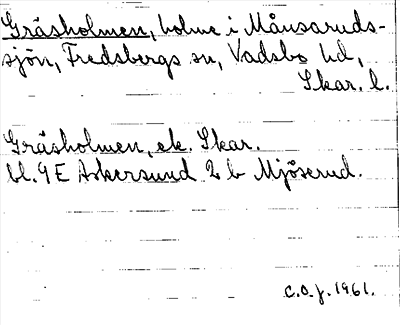 Gräsholmen, holme i Månsaruds-
sjön, Fredsbergs sn, Vadsbo hd,
Skar. l.
Gräsholmen, ek. Skar.
bl. 9E Askersund 2 b Mjöserud.
C.O.J. 1961.